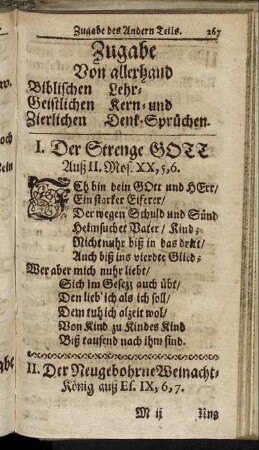 Zugabe des Andern Teils. 267
Zugabe
Von allerhand
Biblischen Lehr-
Geistlichen Kern- und
Zierlichen Denk-Sprüchen.
I. Der Strenge GOTT
Auß II. Mos. XX, 5, 6.
ICh bin dein GOtt und HErr/
Ein starker Eiferer/
Der wegen Schuld und Sünd
Heimsuchet Vater/ Kind;
Nicht nuhr biß in das dritt/
Auch biß ins vierdte Glied;
Wer aber mich nuhr liebt/
Sich im Gesetz auch übt/
Den lieb' ich als ich soll/
Dem tuh ich alzeit wol/
Von Kind zu Kindes Kind
Biß tausend nach ihm sind.
II. Der Neugebohrne Weinacht-
König auß Es. IX, 6, 7.
M ij Jüng